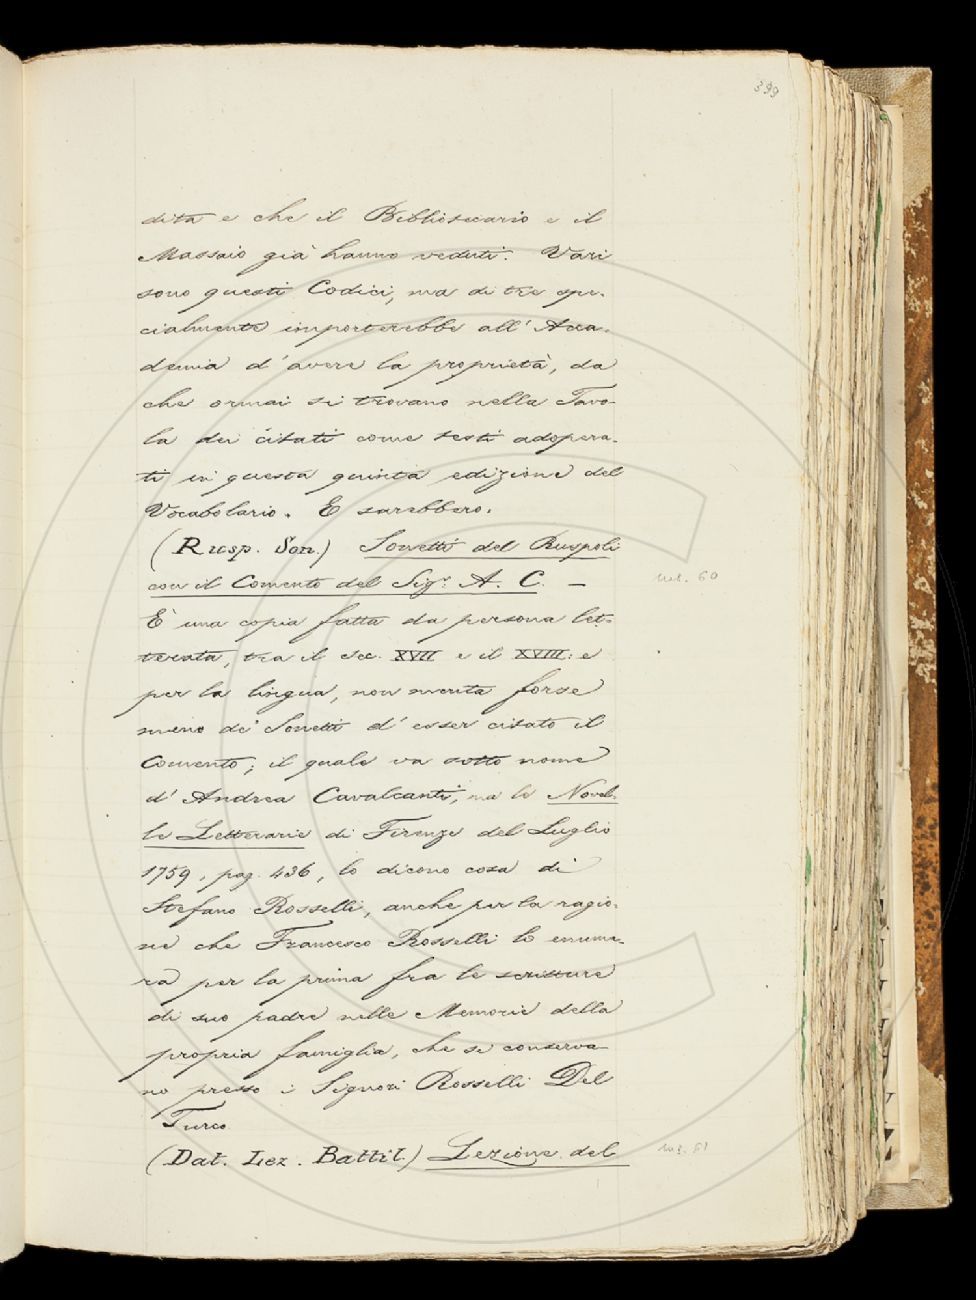 399
dita e che il Bibliotecario e il
Massaio già hanno veduti. Vari
sono questi Codici, ma di tre spe-
cialmente importerebbe all' Acca-
demia d' avere la proprietà, da
che ormai si trovano nella Tavo-
la dei citati come testi adopera-
ti in questa quinta edizione del
Vocabolario. E sarebbero.
(Rusp. Son.) Sonetti del Ruspoli
con il Comento del Sig.r A. C. —
ms. 60
È una copia fatta da persona let-
terata, tra il sec. XVII e il XVIII: e
per la lingua, non merita forse
meno de' Sonetti d' esser citato il
Comento; il quale va sotto nome
d' Andrea Cavalcanti, ma le Novel-
le Letterarie di Firenze del Luglio
1759, pag. 436, lo dicono cosa di
Stefano Rosselli, anche per la ragio-
ne che Francesco Rosselli lo enume-
ra per la prima fra le scritture
di suo padre nelle Memorie della
propria famiglia, che si conserva-
no presso i Signori Rosselli Del
Turco
(Dat. Lez. Battil.) Lezione del
ms. 61